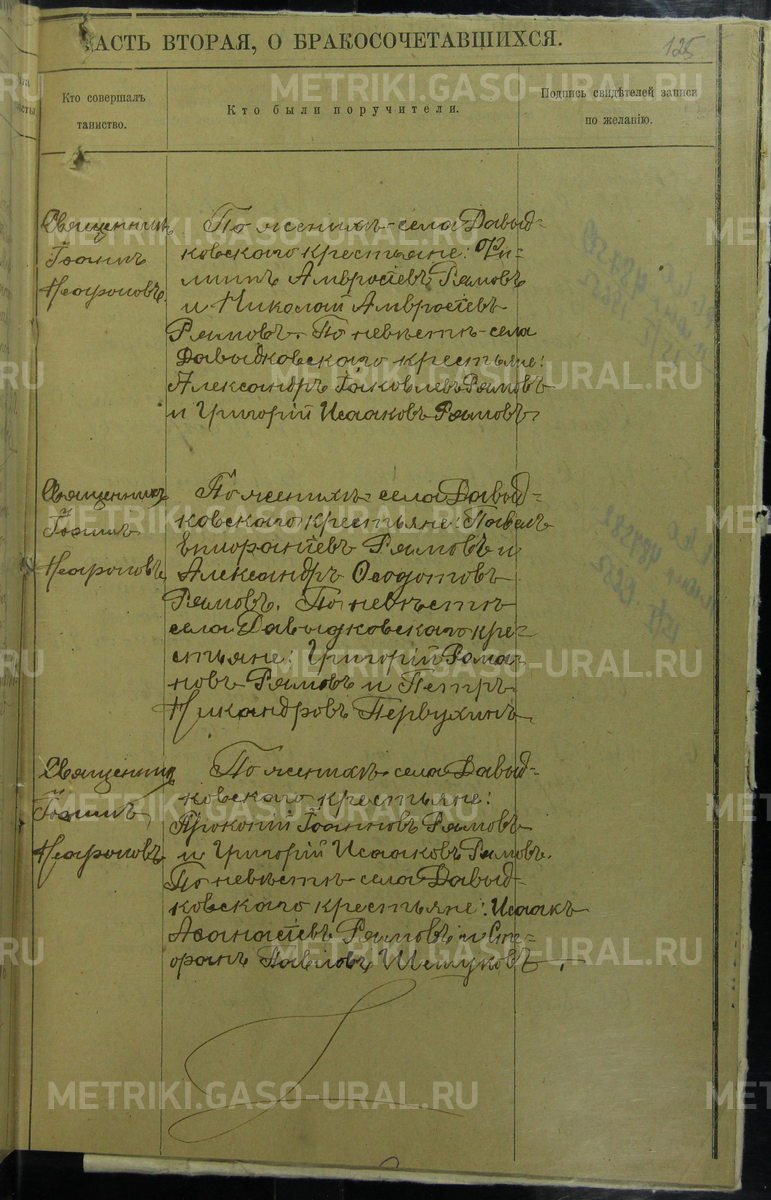 ЧАСТЬ ВТОРАЯ, О БРАКОСОЧЕТАВШИХСЯ.
125
Кто совершалъ
таинство.
Кто были поручители.
Подпись свидѣтелей записи
по желанію.
Священникъ
Іоаннъ
По женихѣ - села Давыд-
ковскаго крестьяне: Фи-
липпъ Амвросіевъ Рямовъ
и Николай Амвросіевъ
Рямовъ. По невѣстѣ - села
Давыдковскаго крестьяне:
Александръ Іаковлевъ Рямовъ
и Григорій Исааковъ Рямовъ.
Священникъ
Іоаннъ
По женихѣ - села Давыд-
ковскаго крестьяне: Павелъ
Рямовъ и
Александръ Ѳеодотовъ
Рямовъ. По невѣстѣ
села Давыдковскаго кре-
стьяне: Григорій Рома-
новъ Рямовъ и Петръ
Никандровъ Первухинъ
Священникъ
Іоаннъ
По женихѣ - села Давыд-
ковскаго крестьяне:
Прокопій Іоанновъ Рямовъ
и Григорій Исааковъ Рямовъ.
По невѣстѣ - села Давыд-
ковскаго крестьяне: Исаакъ
Аѳанасіевъ Рямовъ и Сте-
фанъ Павловъ
METRIKI.GASO-URAL.RU